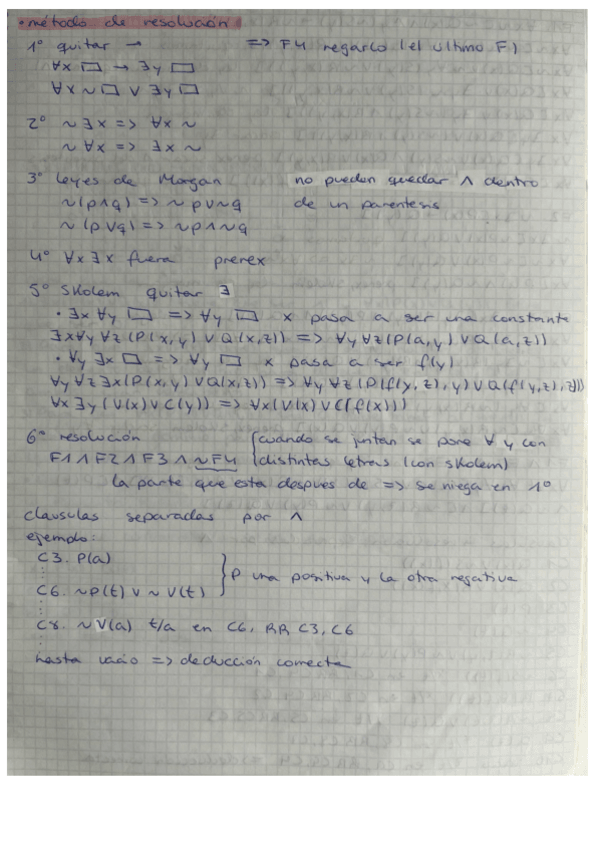 • método de resolución
1º quitar → => F4 negarlo (el ultimo F)
∀x □ → ∃y □
∀x ~□ ∨ ∃y □
2º ~∃x => ∀x ~
~∀x => ∃x ~
3º leyes de Morgan no pueden quedar ∧ dentro
~(p∧q) => ~p∨~q de un parentesis
~(p∨q) => ~p∧~q
4º ∀x∃x fuera prenex
5º Skolem quitar ∃
• ∃x ∀y □ => ∀y □ x pasa a ser una constante
∃x∀y ∀z (P(x,y) ∨ Q(x,z)) => ∀y ∀z (P(a,y) ∨ Q(a,z))
• ∀y ∃x □ => ∀y □ x pasa a ser f(y)
∀y ∀z ∃x (P(x,y) ∨ Q(x,z)) => ∀y ∀z (P(f(y,z),y) ∨ Q(f(y,z),z))
∀x ∃y (V(x) ∨ C(y)) => ∀x (V(x) ∨ C(f(x)))
6º resolución {cuando se juntan se pone ∀ y con
F1 ∧ F2 ∧ F3 ∧ ~F4 distintas letras (con skolem)
la parte que esta despues de => se niega en 1º
clausulas separadas por ∧
ejemplo:
C3. P(a)
⋮ } P una positiva y la otra negativa
C6. ~P(t) ∨ ~V(t)
⋮
C8. ~V(a) t/a en C6, RR C3, C6
⋮
hasta vacio => deducción correcta